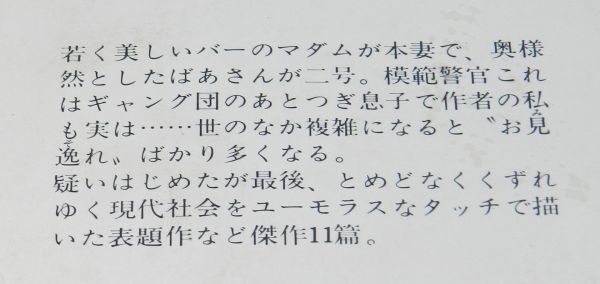 若く美しいバーのマダムが本妻で、奥様
然としたばあさんが二号。模範警官これ
はギャング団のあとつぎ息子で作者の私
も実は……世のなか複雑になると〝お見
逸れ〟ばかり多くなる。
疑いはじめたが最後、とめどなくくずれ
ゆく現代社会をユーモラスなタッチで描
いた表題作など傑作11篇。